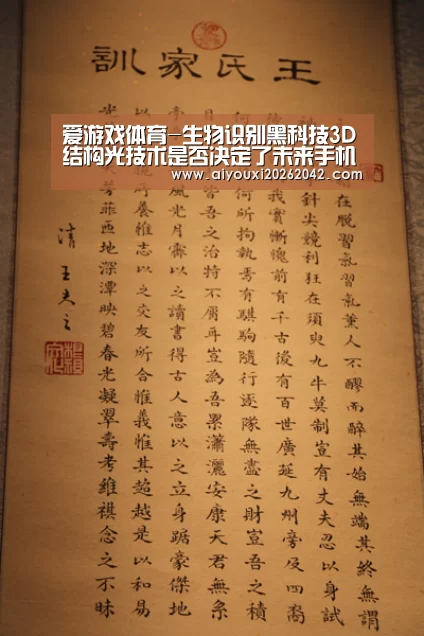 王氏家訓
在脫習氣習氣薰人不醪而醉其始無端其終無謂
針尖競利狂在須臾九牛莫制豈有丈夫忍以身試
我實慚愧前有千古後有百世廣延九州旁及四裔
何所拘執焉有騏駒隨行逐隊無盡之財豈吾之積
目 皆吾之治特不屑耳豈為吾累瀟灑安康天君無系
亭 風光月霽以之讀書得古人意以之立身踞豪傑地
以 所養惟志以之交友所合惟義惟其超越是以和易
光 芳菲匝地深潭映碧春光凝翠壽考維祺念之不昧
清 王夫之
爱游戏体育-生物识别黑科技3D
结构光技术是否决定了未来手机
www.aiyouxi20262042.com